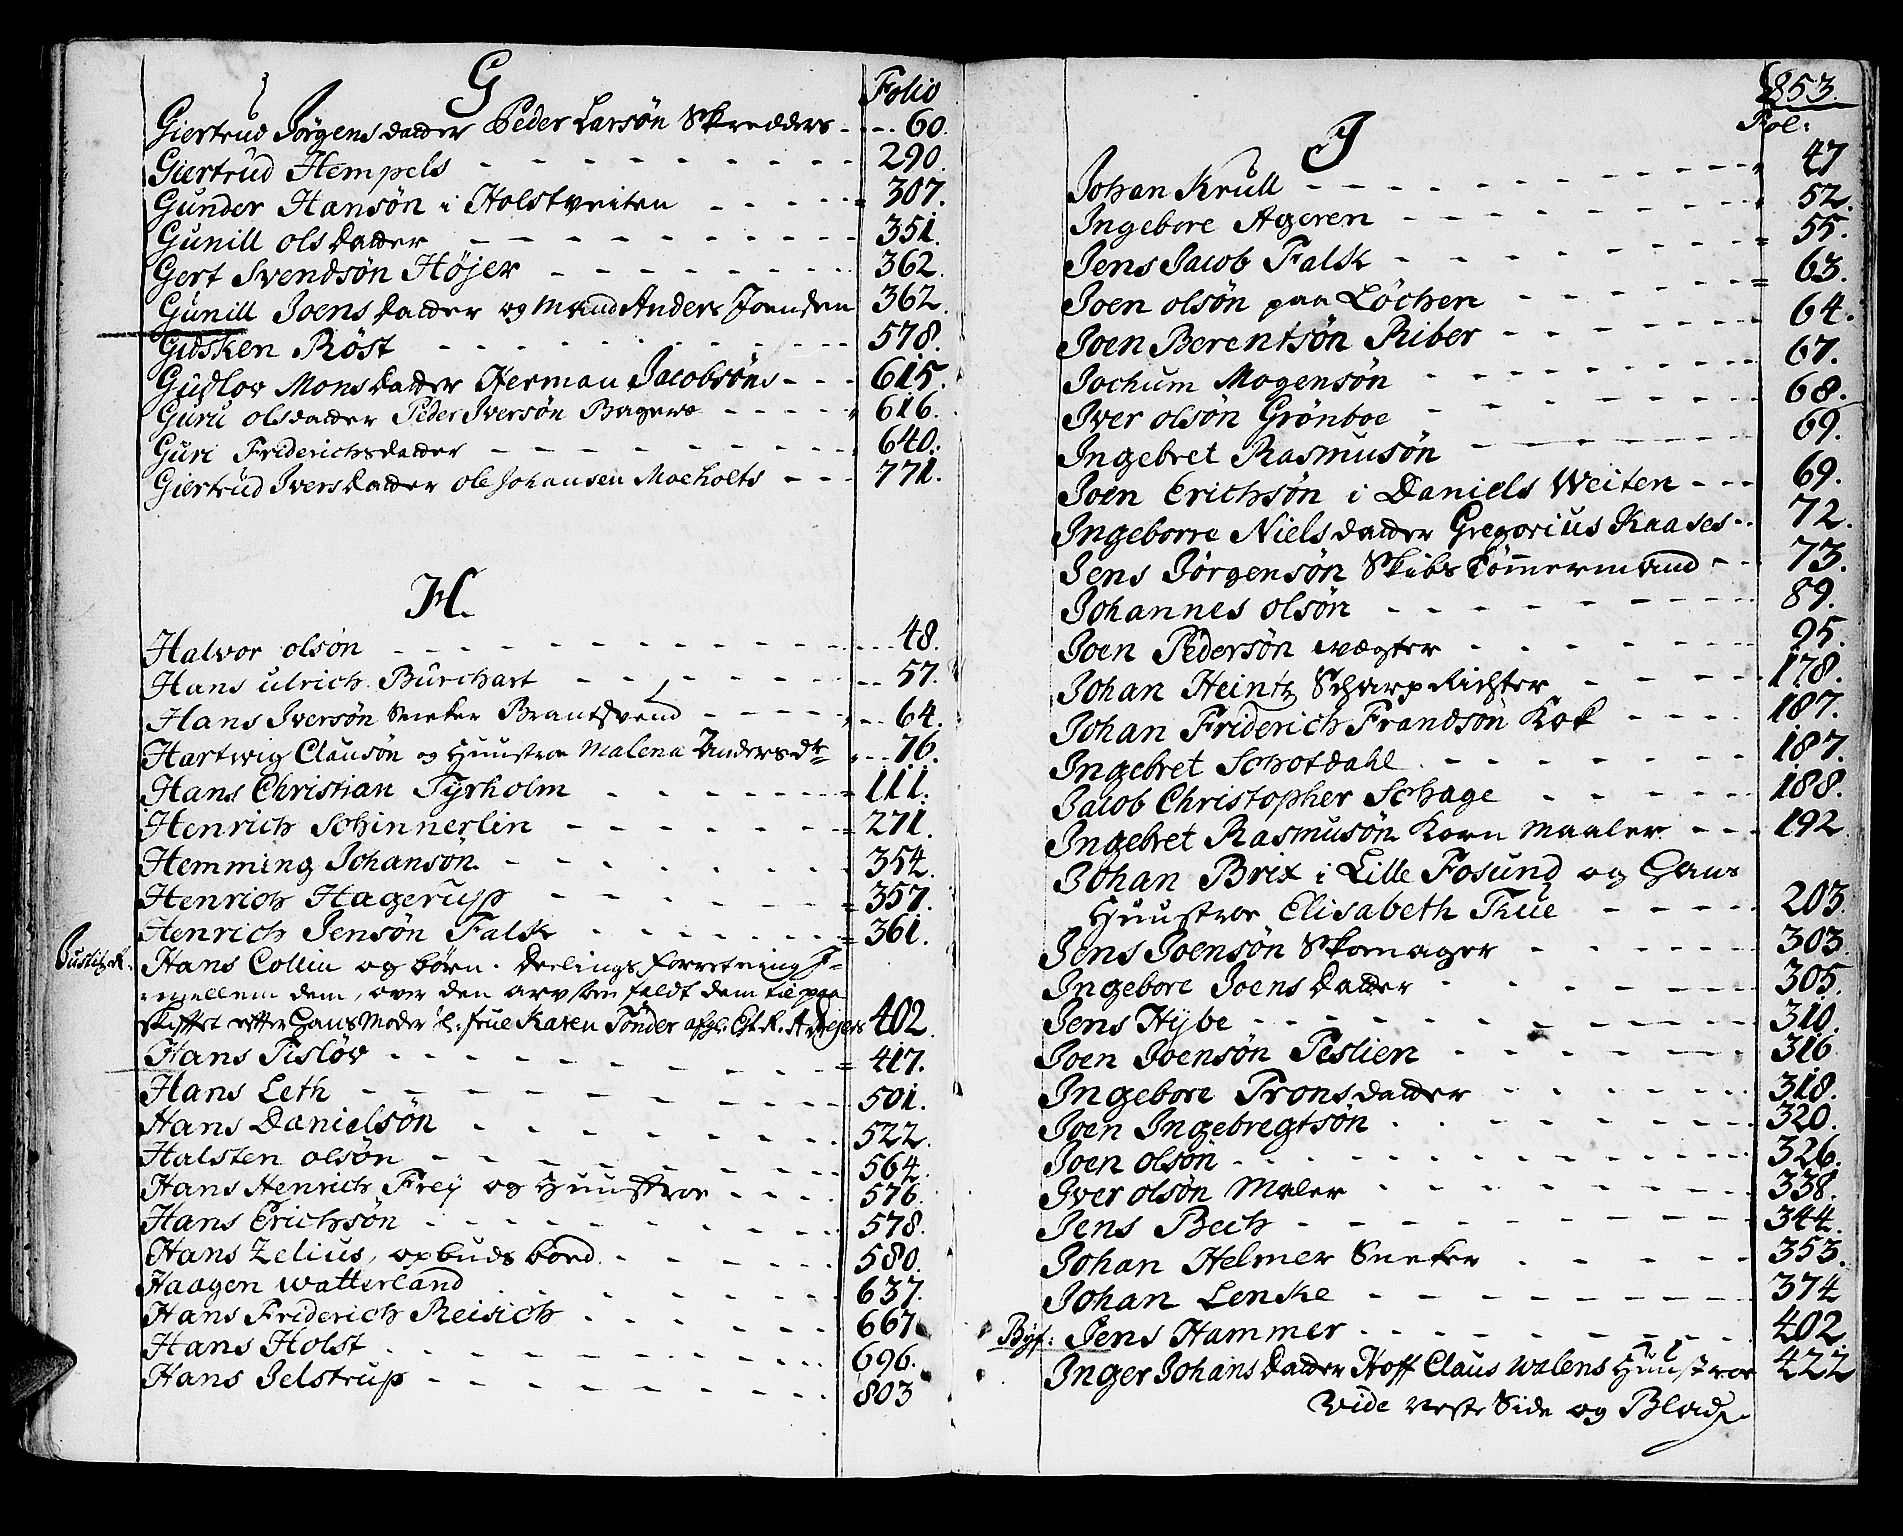 G
Folio
Giertrud Jörgensdatter Peder Larsön Skredders 60.
Giertrud Hempels 290.
Gunder Hansön i Holstveiten 307.
Gunill olsdatter 351.
Gert Svendsön Højer 362.
Gunill Joensdatter og Mand Anders Joensen 362.
Gidsken Röst 578.
Gudlov Monsdatter Herman Jacobsöns 615.
Guru olsdatter Peder Iversön Bagers 616.
Guri Friderichsdatter 640.
Giertrud Iversdatter ole Johansen Moeholts 771.
H.
Halvor olsön 48.
Hans ulrich Burchart 57.
Hans Iversön Sneker Brantsvend 64.
Hartwig Clausön og Huustroe Malena Andersdtr 76.
Hans Christian Tyrholm 111.
Henrich Schinnerlin 271.
Hemming Johansön 354.
Henrich Hagerup 357.
Henrich Jensön Falk 361.
Justitz R. Hans Collin og börn. Deelings forretning I-
mellem dem, over den arv som faldt dem til paa
skiftet efter Hans Moder Sl: frue Karen Tönder afgl. Et. R. Angels 402.
Hans Tislöv 417.
Hans Leth 501.
Hans Danielsön 522.
Halsten olsön 564.
Hans Henrich Frey og Huustroe 576.
Hans Erichsön 578.
Hans Zelius, opbuds boed 580.
Haagen watterland 637.
Hans Friderich Reisich 667.
Hans Holst 696.
Hans Jelstrup 803
853.
Fol:
J
Johan Krull 47
Ingebore Ageren 52.
Jens Jacob Falk 55.
Joen olsön paa Löchen 63.
Joen Berentsön Riber 64.
Jochum Mogensön 67.
Iver olsön Grönboe 68.
Ingebret Rasmusön 69.
Joen Erichsön i Daniels Weiten 69.
Ingeborre Nielsdatter Gregorius Kaases 72.
Jens Jörgensön Skibs Tömmermand 73.
Johannes olsön 89.
Joen Pedersön wægter 95.
Johan Heintz Scharp Richter 178.
Johan Friderich Frandsön Kok 187.
Ingebret Schotdahl 187.
Jacob Christopher Schage 188.
Ingebret Rasmusön Korn Maaler 192
Johan Brix i Lille Fosund og Hans
Huustroe Elisabeth Thue 203.
Jens Joensön Skomager 303
Ingebore Joensdatter 305.
Jens Hybe 310.
Joen Joensön Teslien 316
Ingebore Tronsdatter 318.
Joen Ingebregtsön 320.
Joen olsön 326.
Iver olsön Maler 338.
Jens Bech 344.
Johan Helmer Sneker 353.
Johan Lenske 374
Byf: Jens Hammer 402.
Inger Johansdatter Hoff Claus walens Huustroe 422
vide neste Side og Blad